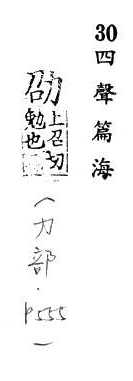 30四聲篇海
劭上召切勉也（力部．P555）